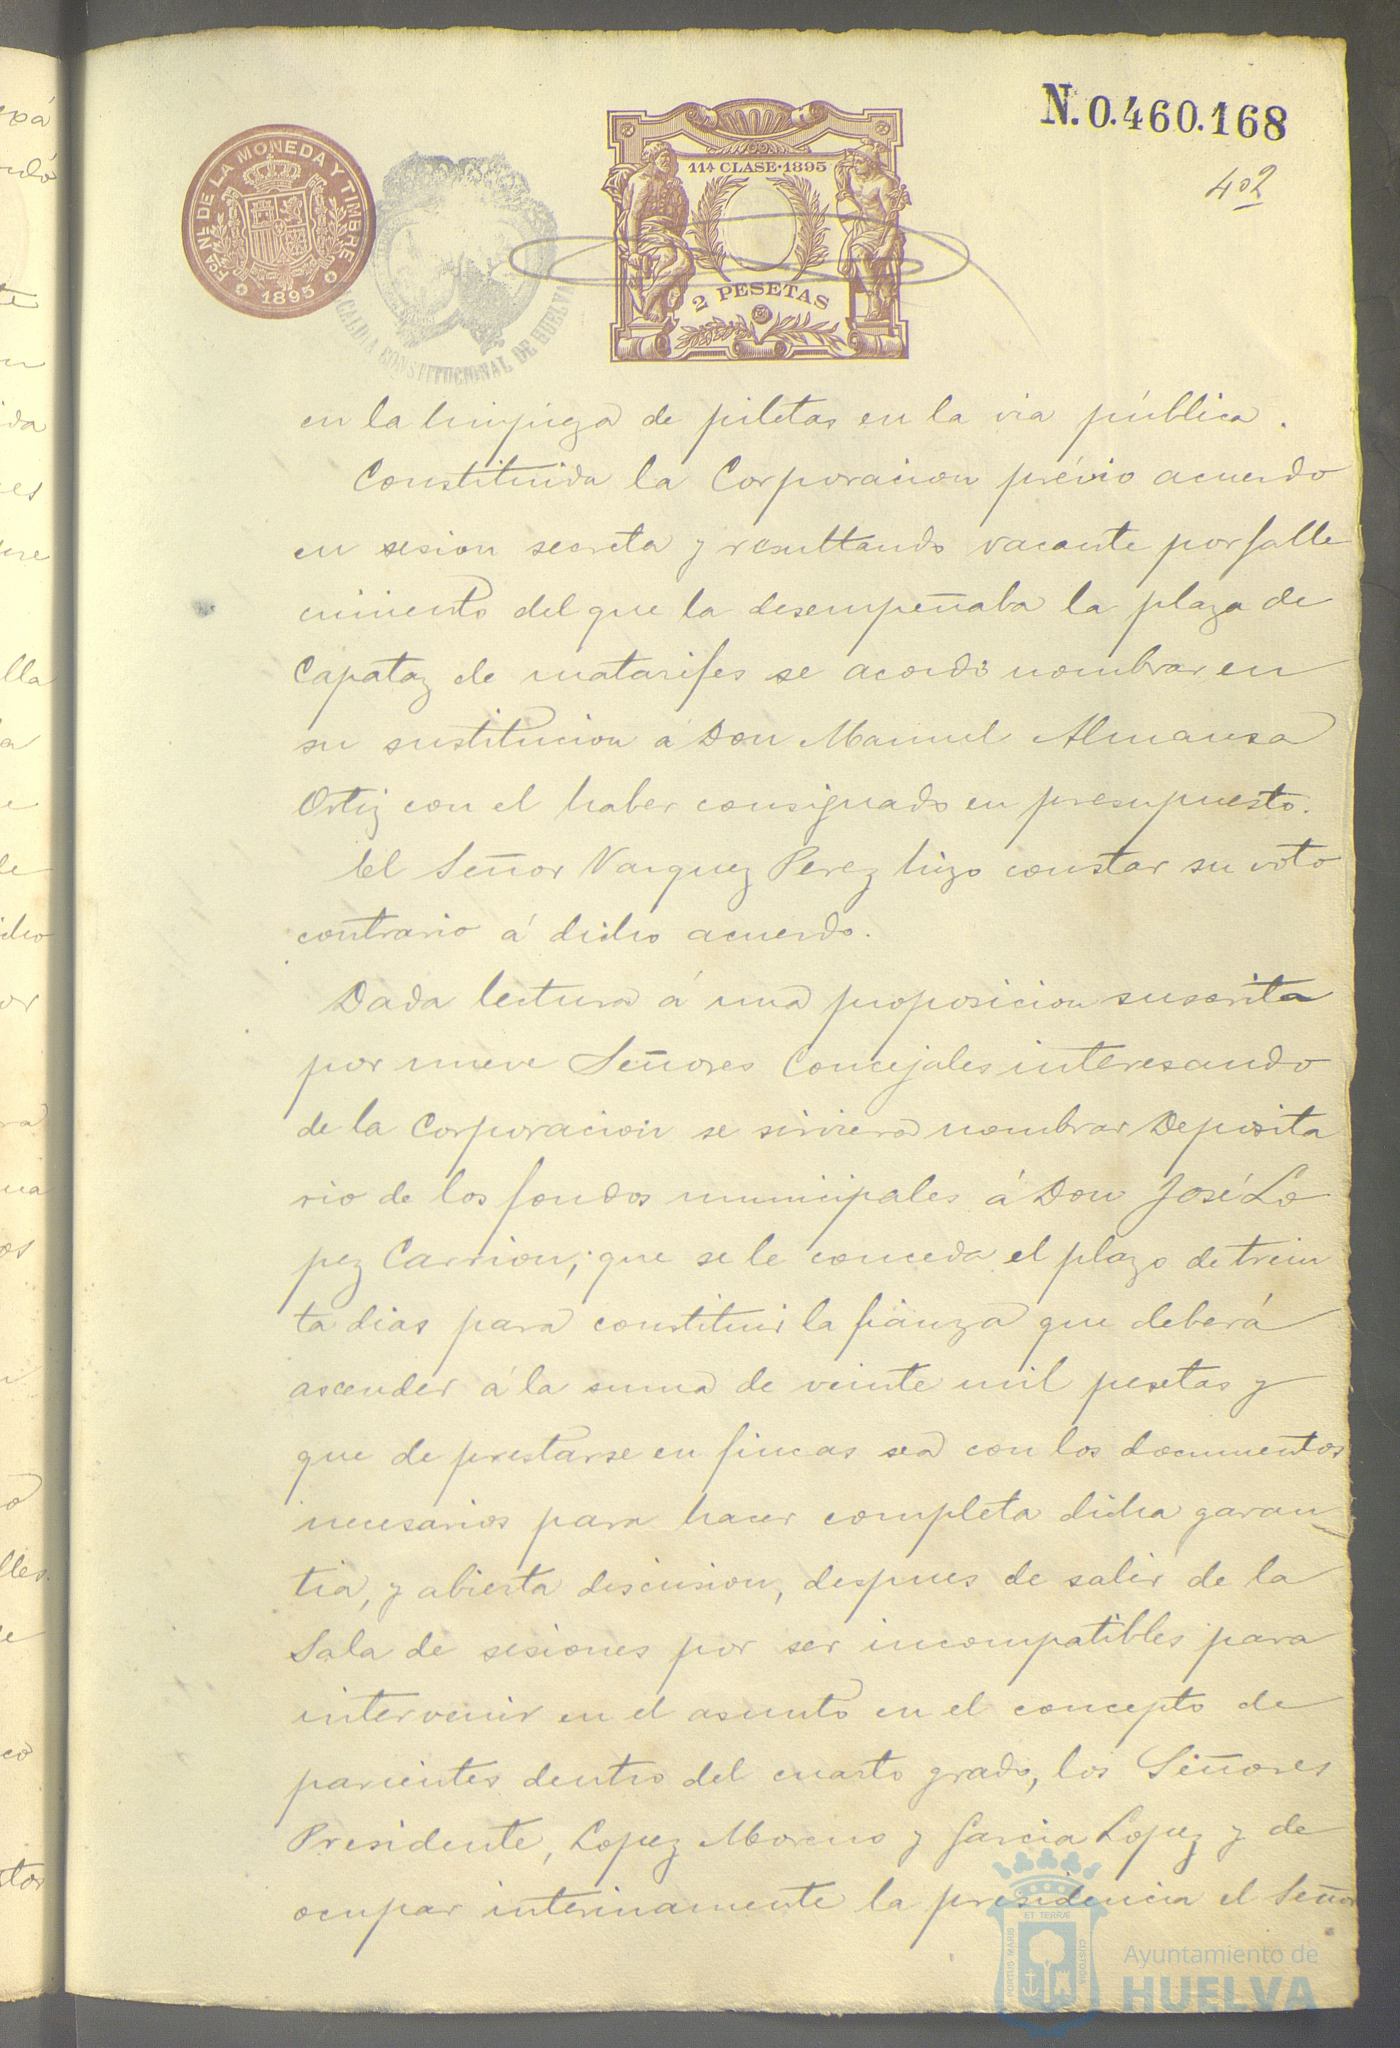 N. 0.460.168
402
FCA NL DE LA MONEDA Y TIMBRE
1895
ALCALDIA CONSTITUCIONAL DE HUELVA
11ª CLASE·1895
2 PESETAS
en la limpieza de piletas en la via pública.
Constituida la Corporacion prévio acuerdo
en sesion secreta y resultando vacante por falle
cimiento del que la desempeñaba la plaza de
Capataz de matarifes se acordó nombrar en
su sustitucion á Don Manuel Almansa
Ortiz con el haber consignado en presupuesto.
El Señor Vazquez Perez hizo constar su voto
contrario á dicho acuerdo.
Dada lectura á una proposicion suscrita
por nueve Señores Concejales interesando
de la Corporacion se sirviera nombrar Deposita
rio de los fondos municipales á Don José Lo
pez Carrion; que se le conceda el plazo de trein
ta dias para constituir la fianza que deberá
ascender á la suma de veinte mil pesetas y
que de prestarse en fincas sea con los documentos
necesarios para hacer completa dicha garan
tia, y abierta discusion, despues de salir de la
Sala de sesiones por ser incompatibles para
intervenir en el asunto en el concepto de
parientes dentro del cuarto grado, los Señores
Presidente, Lopez Moreno y Garcia Lopez y de
ocupar interinamente la presidencia el Señor
PORTUS MARIS ET TERRÆ CUSTODIA
Ayuntamiento de
HUELVA